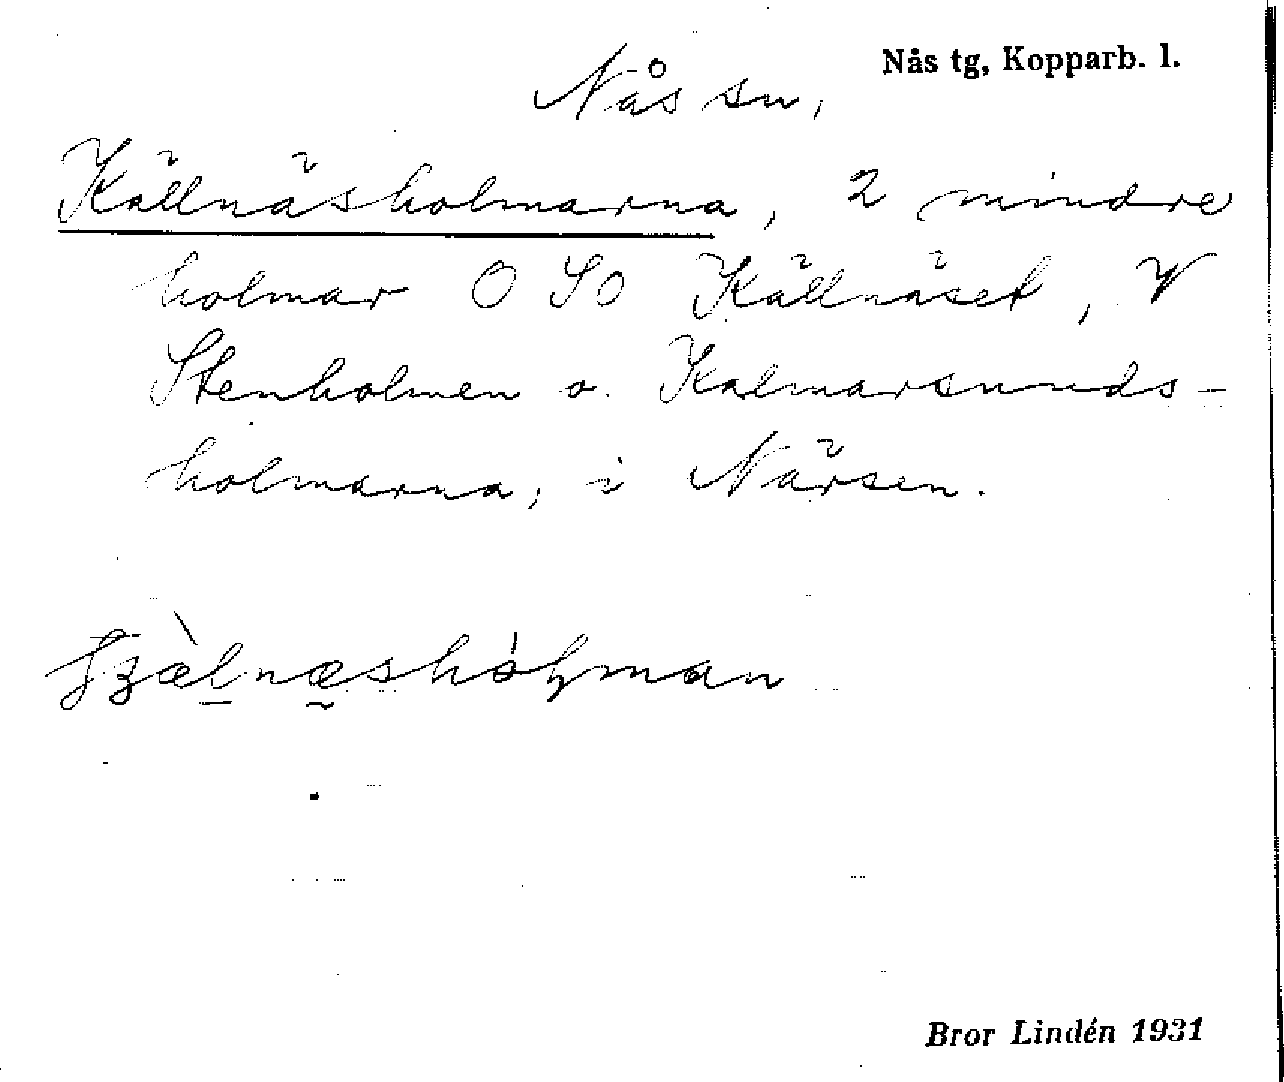 Nås tg, Kopparb. l.
Nås sn,
Källnäsholmarna, 2 mindre
holmar O SO Källnäset, V
Stenholmen o. Kalmarsunds-
holmarna, i Närsen.
Bror Lindén 1931